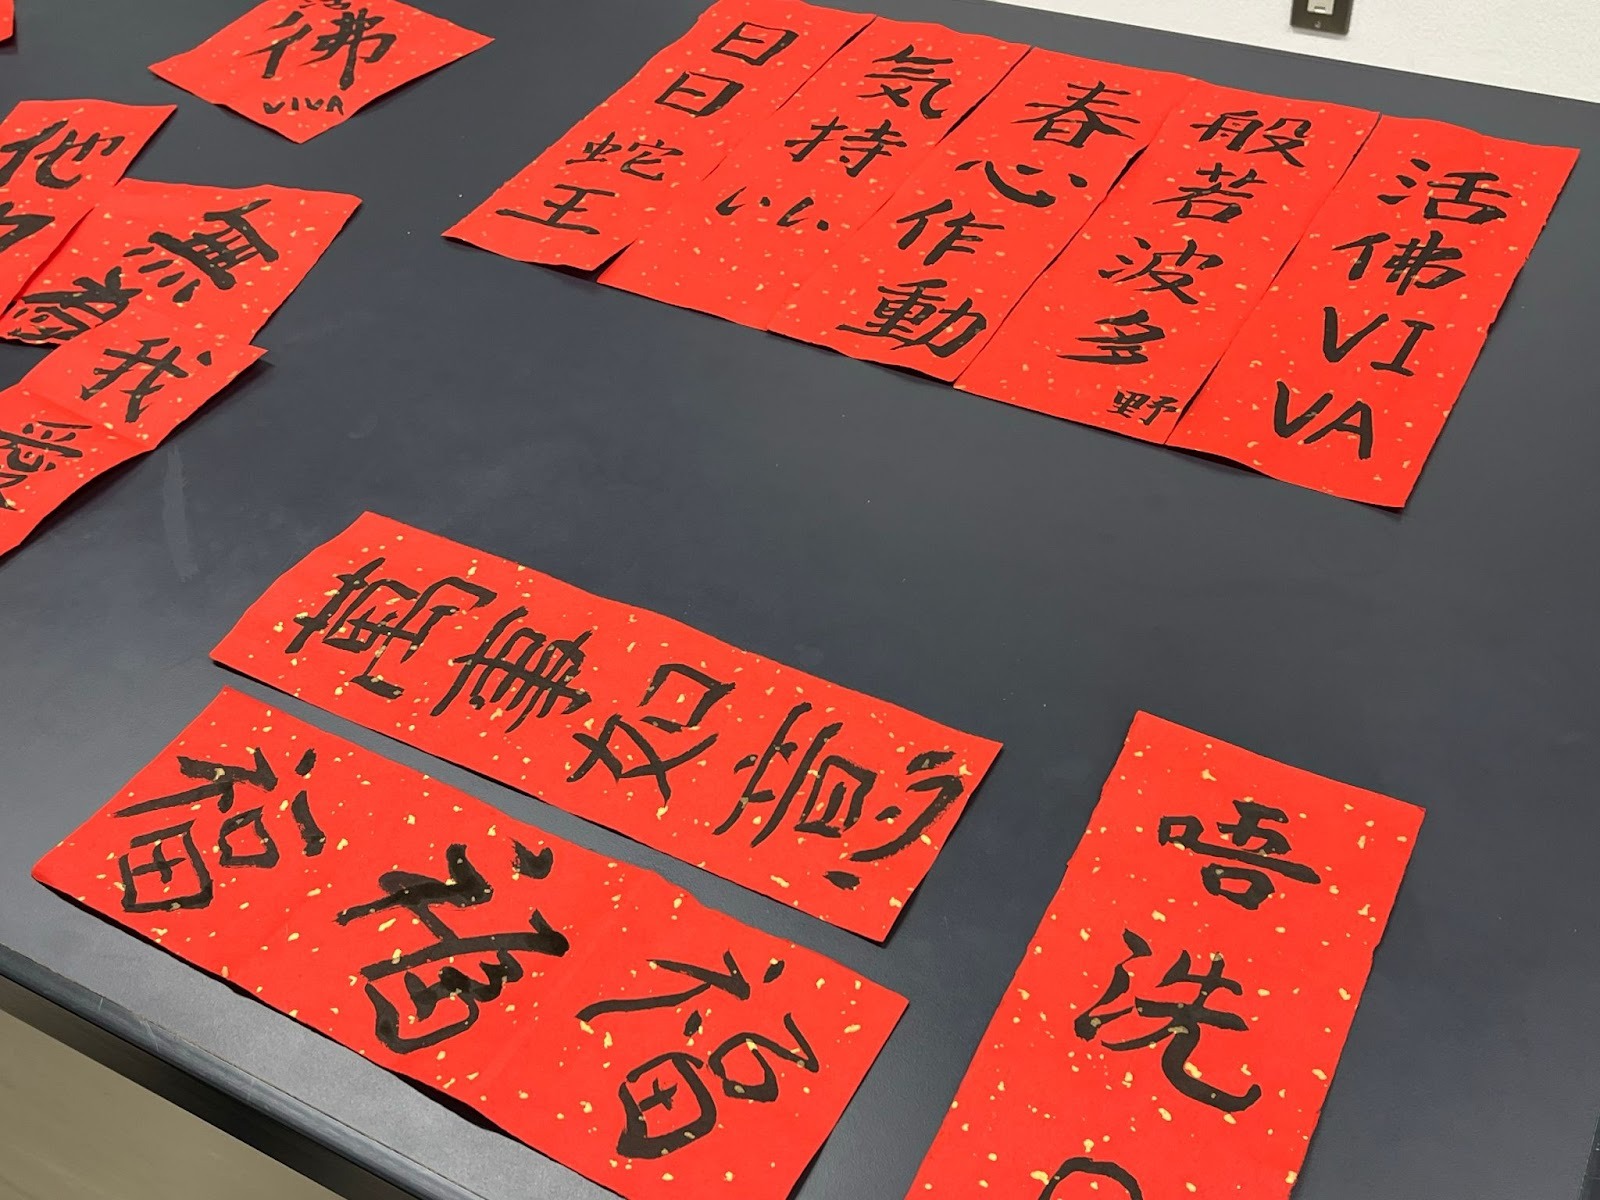 佛
VIVA
他
無
我
愛
曰曰蛇王
気持いい
春心作動
般若波多野
活佛VIVA
萬事如意
福福福
唔洗